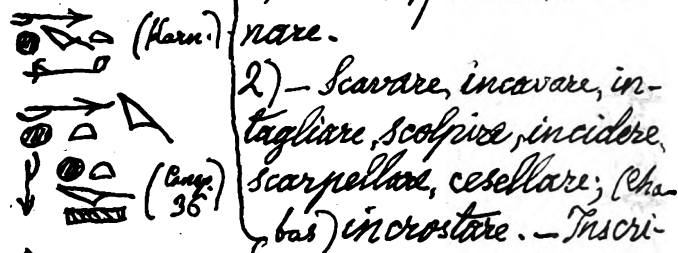 (Harn.) nare.
2) — Scavare, incavare, in-
tagliare, scolpire, incidere,
scarpellare, cesellare; (Cha-
bas) incrostare. — Inscri-
36)